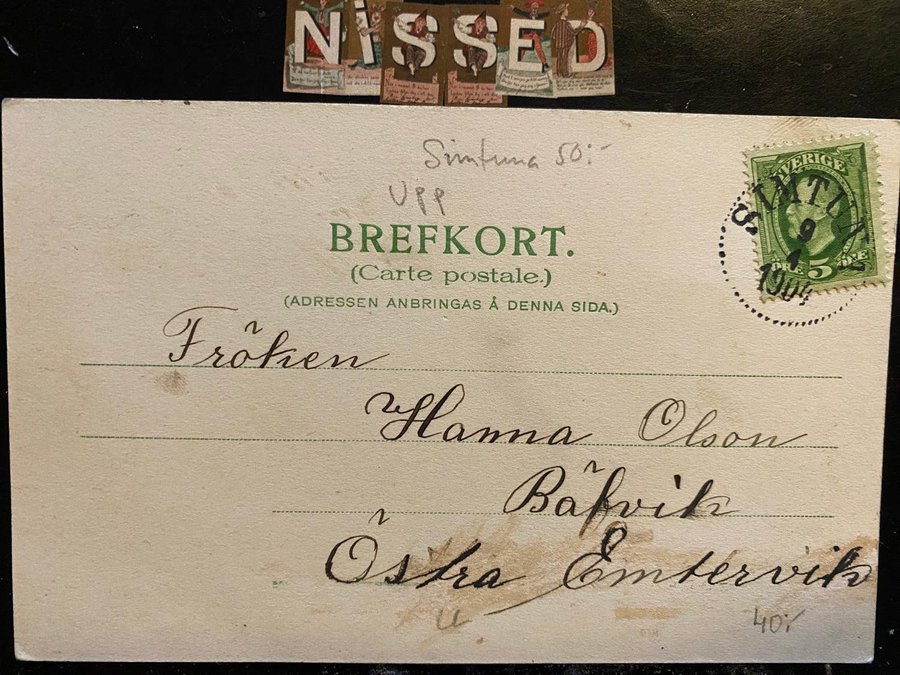 NISSED
Simtuna 50:-
Upp
BREFKORT.
(Carte postale.)
(ADRESSEN ANBRINGAS Å DENNA SIDA.)
SVERIGE
5
SIMTUNA
9
1
1904
Fröken
Hanna Olson
Bäfvik
Östra Emtervik
U
40:-